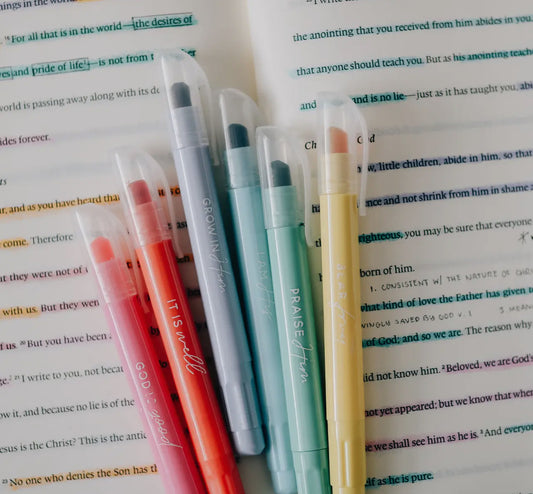 things in the world.
¹⁶ For all that is in the world—the desires of
eyes and pride of life—is not from the
world is passing away along with its de
ides forever.
and as you have heard tha
come. Therefore
t they were not of
with us. But they were
of us. ²⁰ But you have been
²¹ I write to you, not becau
ow it, and because no lie is of the
Jesus is the Christ? This is the antic
²³ No one who denies the Son has th
the anointing that you received from him abides in you,
that anyone should teach you. But as his anointing teache
and is no lie—just as it has taught you, abi
God
now, little children, abide in him, so that
and not shrink from him in shame a
righteous, you may be sure that everyone
born of him.
1. CONSISTENT W/ THE NATURE OF
what kind of love the Father has given to
SAVED BY GOD
of God; and so we are. The reason why
did not know him. ² Beloved, we are God's
not yet appeared; but we know that when
we shall see him as he is. ³ And everyone
as he is pure.
GOD IS good
IT IS well
GROW IN Him
I AM His
PRAISE Him